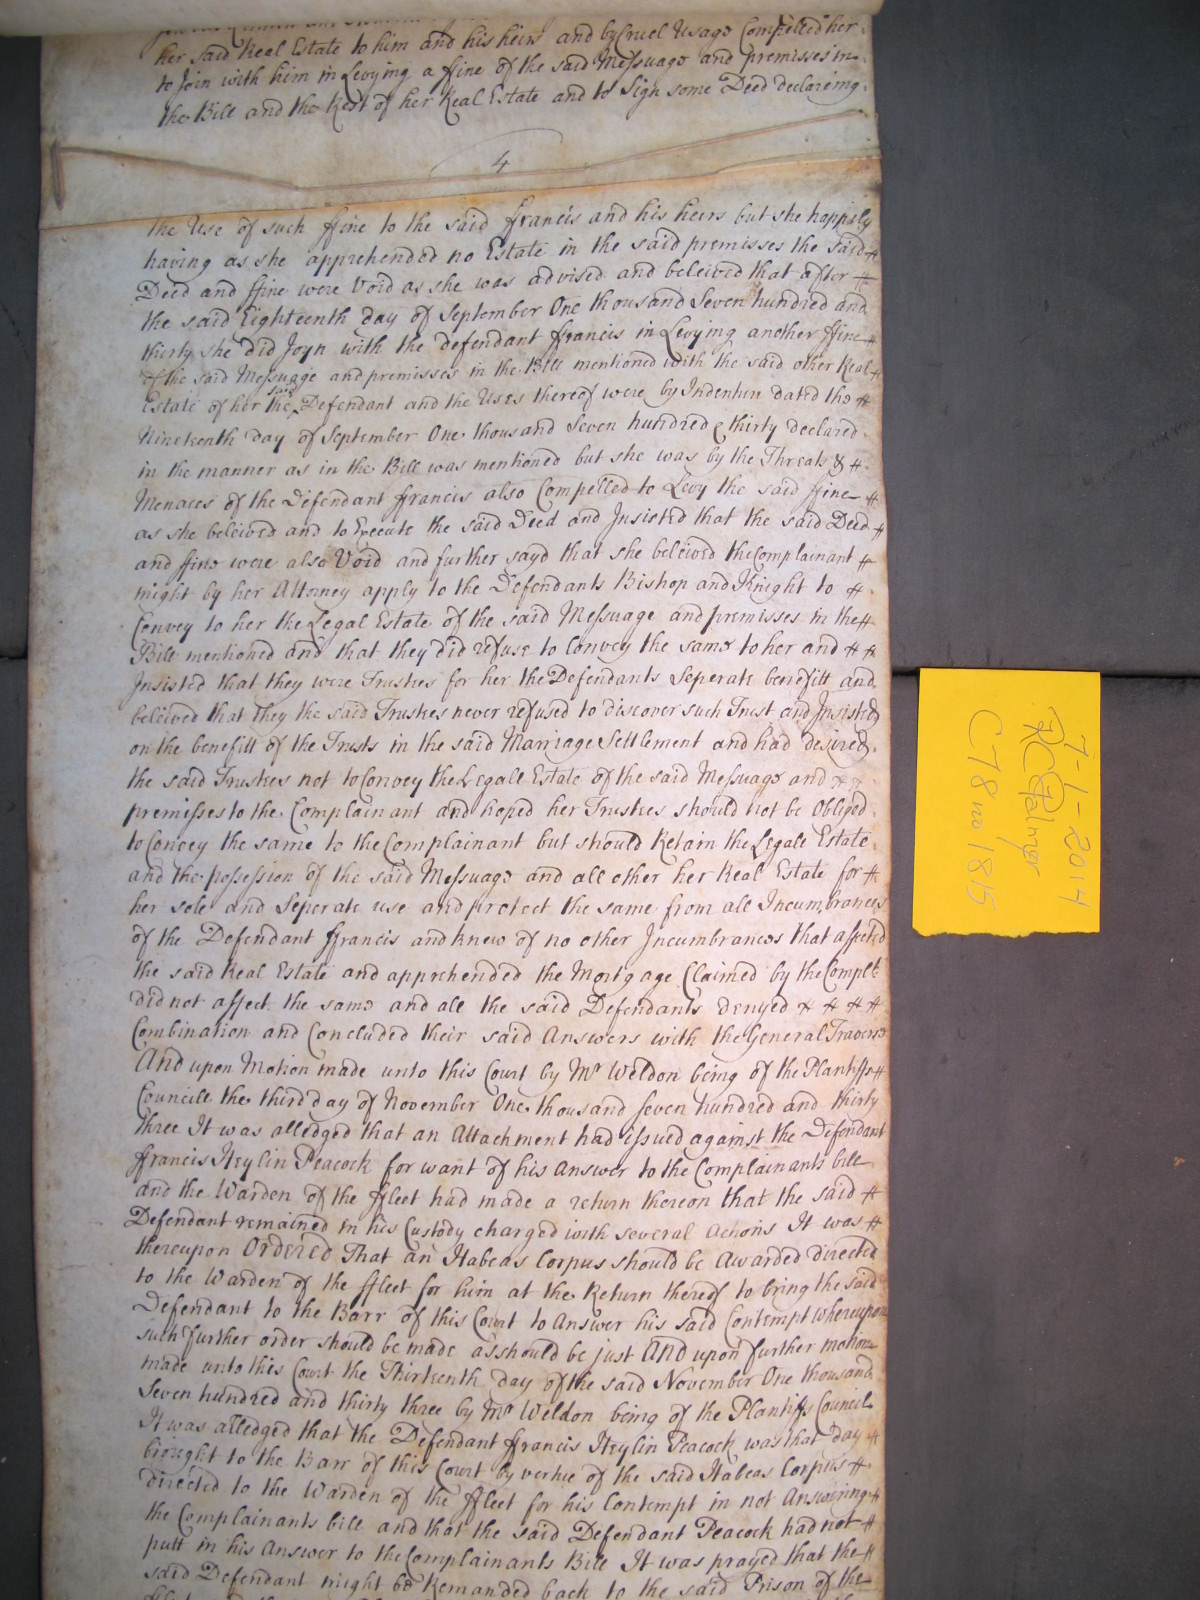 her said Real Estate to him and his heirs and by Cruel Usage Compelled her
to Join with him in Levying a ffine of the said Messuage and premisses in
the Bill and the Rest of her Real Estate and to Sign some Deed declareing
4
the Use of such ffine to the said ffrancis and his heirs but she happily
having as she apprehended no Estate in the said premisses the said
Deed and ffine were Void as she was advised and beleived that after
the said Eighteenth day of September One thousand Seven hundred and
thirty she did Joyn with the defendant ffrancis in Levying another ffine
of the said Messuage and premisses in the Bill mentioned with the said other Real
Estate of her the said Defendant and the Uses thereof were by Indenture dated the
Nineteenth day of September One thousand Seven hundred & thirty declared
in the manner as in the Bill was mentioned but she was by the Threats &
Menaces of the Defendant ffrancis also Compelled to Levy the said ffine
as she beleived and to Execute the said Deed and Insisted that the said Deed
and ffine were also Void and further sayd that she beleived the Complainant
might by her Attorney apply to the Defendants Bishop and Knight to
Convey to her the Legal Estate of the said Messuage and premisses in the
Bill mentioned and that they did refuse to Convey the same to her and
Insisted that they were Trustees for her the Defendants Seperate benefitt and
beleived that they the said Trustees never refused to discover such Trust and Insisted
on the benefitt of the Trusts in the said Marriage Settlement and had desired
the said Trustees not to Convey the Legall Estate of the said Messuage and
premisses to the Complainant and hoped her Trustees should not be Obliged
to Convey the same to the Complainant but should Retain the Legall Estate
and the possession of the said Messuage and all other her Real Estate for
her sole and Seperate use and protect the same from all Incumbrances
of the Defendant ffrancis and knew of no other Incumbrances that affected
the said Real Estate and apprehended the Mortgage Claimed by the Complt
did not affect the same and all the said Defendants denyed
Combination and Concluded their said Answers with the General Traverse
And upon Motion made unto this Court by Mr Weldon being of the Plantiffs
Councill the third day of November One thousand seven hundred and thirty
three It was alledged that an Attachment had issued against the Defendant
ffrancis Heylin Peacock for want of his Answer to the Complainants bill
and the Warden of the ffleet had made a return thereon that the said
Defendant remained in his Custody charged with several Actions It was
thereupon Ordered That an Habeas Corpus should be Awarded directed
to the Warden of the ffleet for him at the Return thereof to bring the said
Defendant to the Barr of this Court to Answer his said Contempt whereupon
such further order should be made as should be just And upon further motion
made unto this Court the Thirteenth day of the said November One thousand
Seven hundred and thirty three by Mr Weldon being of the Plantiffs Council
It was alledged that the Defendant ffrancis Heylin Peacock was that day
brought to the Barr of this Court by vertue of the said Habeas Corpus
directed to the Warden of the ffleet for his Contempt in not Answering
the Complainants bill and that the said Defendant Peacock had not
putt in his Answer to the Complainants Bill It was prayed that the
said Defendant might be Remanded back to the said Prison of the
7-1-2014
C78 no 1815